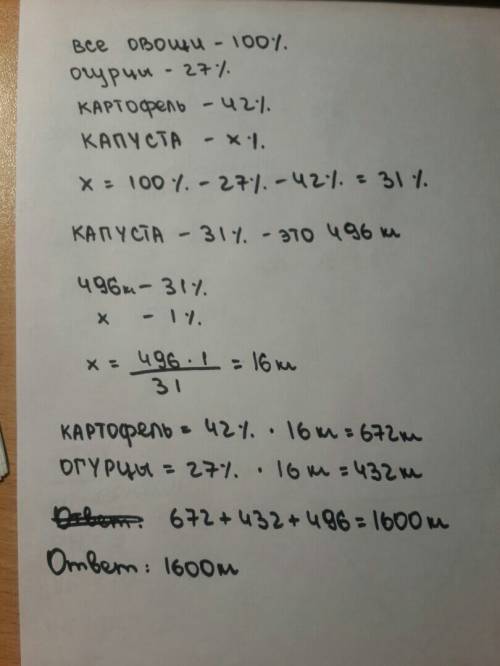 все овощи - 100%.
огурцы - 27%.
картофель - 42%
капуста - x%.
x = 100% - 27% - 42% = 31%.
капуста - 31% - это 496 т
496т - 31%.
x - 1%.
x = 496 · 1 / 31 = 16т
картофель = 42% · 16т = 672т
огурцы = 27% · 16т = 432т
Ответ: 672 + 432 + 496 = 1600т
Ответ: 1600т